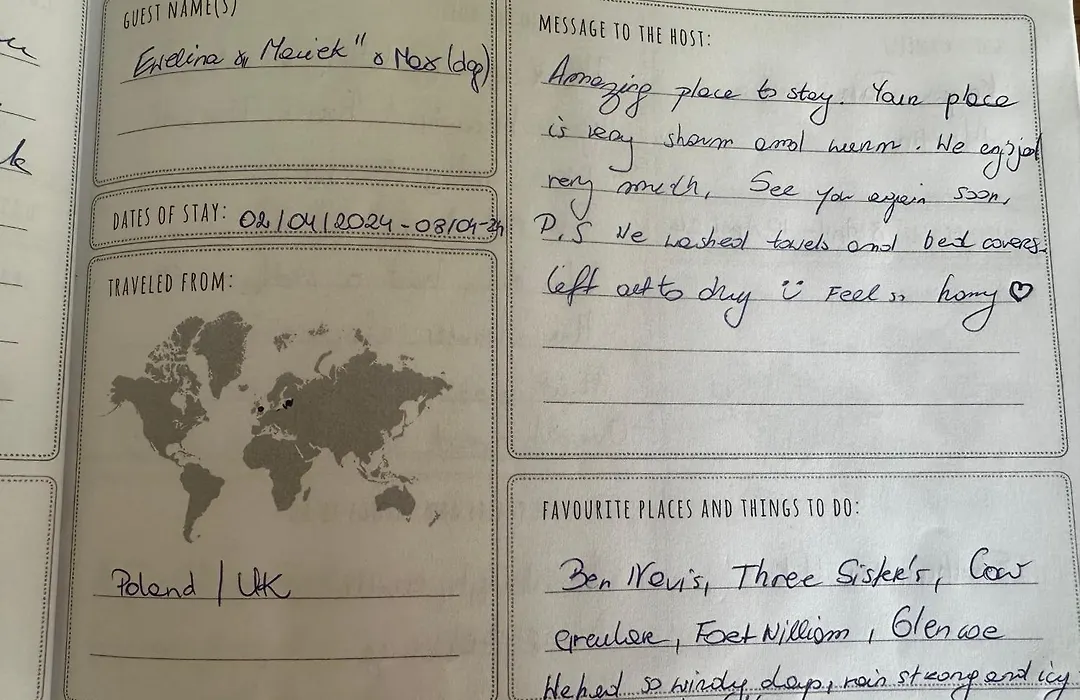 GUEST NAME(S)
Ewelina & Maciek" & Max (dog)
DATES OF STAY: 02/04/2024 - 08/04-24
TRAVELED FROM:
Poland / UK
MESSAGE TO THE HOST:
Amazing place to stay. Your place
is very sharm and warm. We enjojed
very much, See you again soon,
P.S We washed towels and bed covers.
left out to dry Feel so homy ♡
FAVOURITE PLACES AND THINGS TO DO:
Ben Nevis, Three Sister's, Cow
Fort William, Glen coe
We had so windy days, rain strong and icy